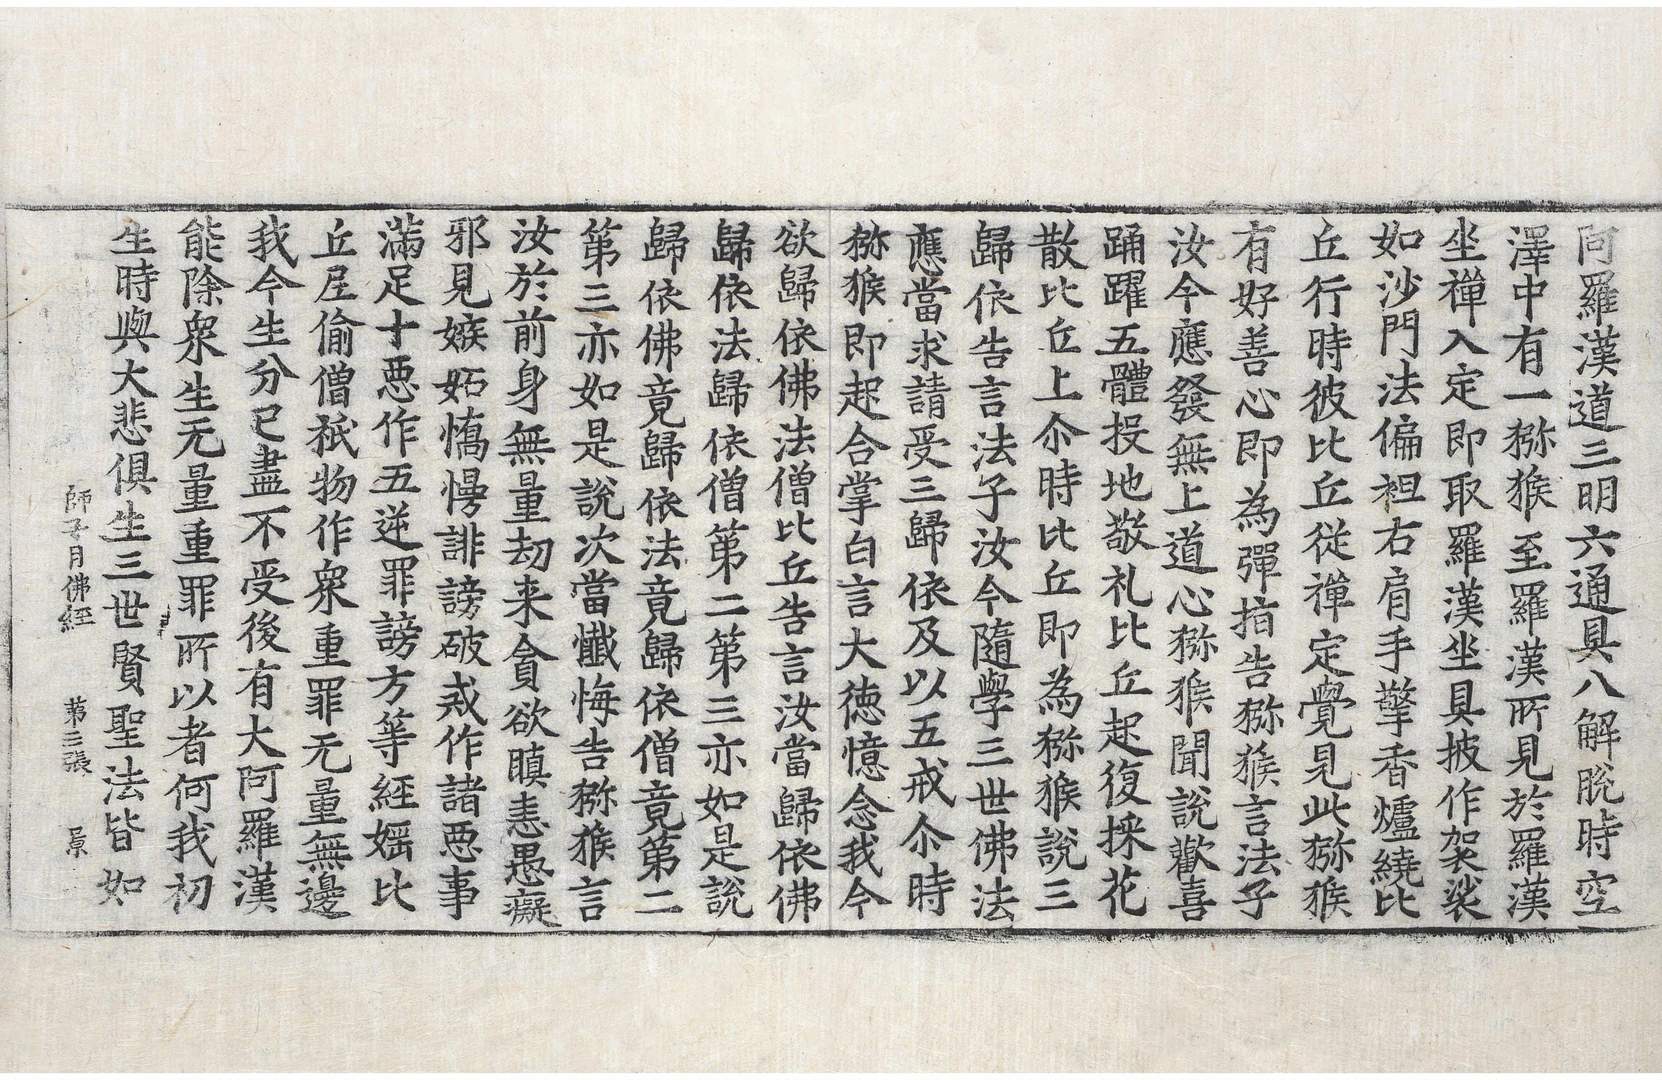 阿羅漢道三明六通具八解脫時空
澤中有一猕猴至羅漢所見於羅漢
坐禪入定即取羅漢坐具披作袈裟
如沙門法偏袒右肩手擎香爐繞比
丘行時彼比丘從禪定覺見此猕猴
有好善心即為彈指告猕猴言法子
汝今應發無上道心猕猴聞說歡喜
踊躍五體投地敬礼比丘起復採花
散比丘上尒時比丘即為猕猴說三
歸依告言法子汝今隨學三世佛法
應當求請受三歸依及以五戒尒時
猕猴即起合掌白言大德憶念我今
欲歸依佛法僧比丘告言汝當歸依佛
歸依法歸依僧第二第三亦如是說
歸依佛竟歸依法竟歸依僧竟第二
第三亦如是說次當懺悔告猕猴言
汝於前身無量劫来貪欲瞋恚愚癡
邪見嫉妬憍慢誹謗破戒作諸惡事
滿足十惡作五逆罪謗方等經婬比
丘尼偷僧祇物作衆重罪无量無邊
我今生分已盡不受後有大阿羅漢
能除衆生无量重罪所以者何我初
生時與大悲俱生三世賢聖法皆如
師子月佛經 第三張 景